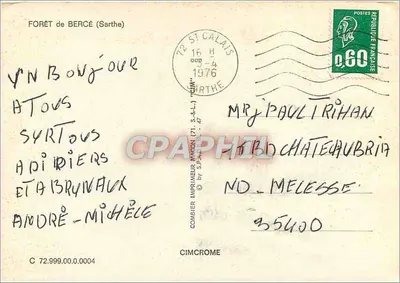 FORÊT de BERCÉ (Sarthe)
72 ST CALAIS
16 H
1976
SARTHE
POSTES
RÉPUBLIQUE FRANÇAISE
0,60
UN BONJOUR
A TOUS
SURTOUS
A DIDIERS
ET A BRUNAUX
ANDRÉ - MICHÈLE
COMBIER IMPRIMEUR MACON (71. S.-&-L.) "CIM"
MR J PAUL TRIHAN
CHATEAUBRIA
ND - MELESSE
35400
CPAPHIL
C 72.999.00.0.0004
CIMCROME